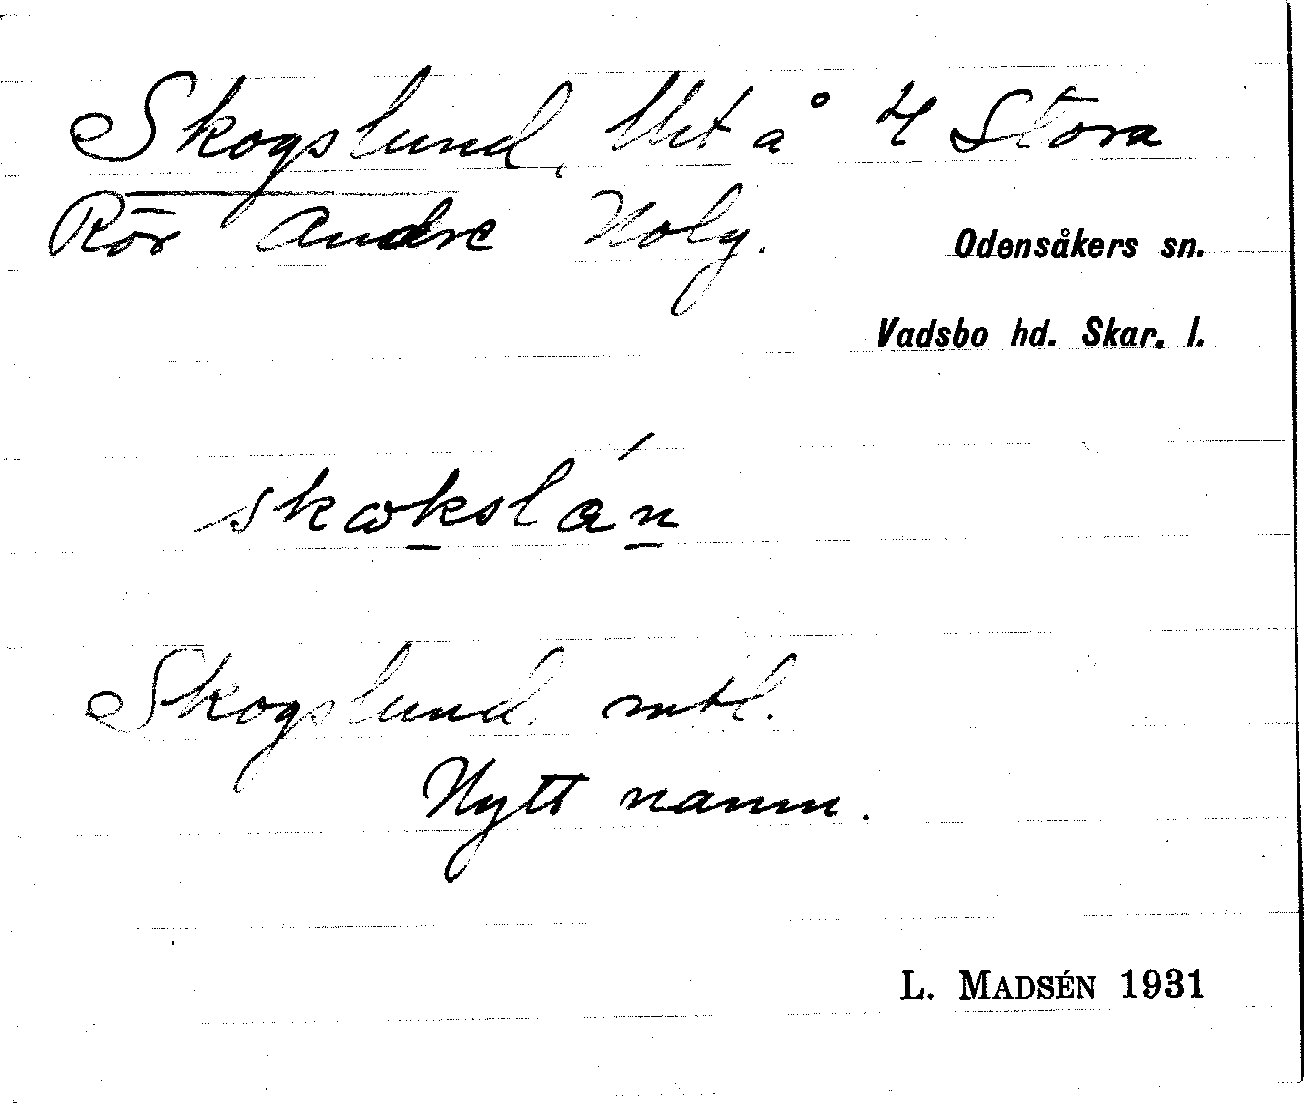 Skogslund, lht å 4 Stora
Rör Andre Holg.
Odensåkers sn.
Vadsbo hd. Skar. l.
skωkslán
Skogslund mtl.
Nytt namn.
L. MADSÉN 1931